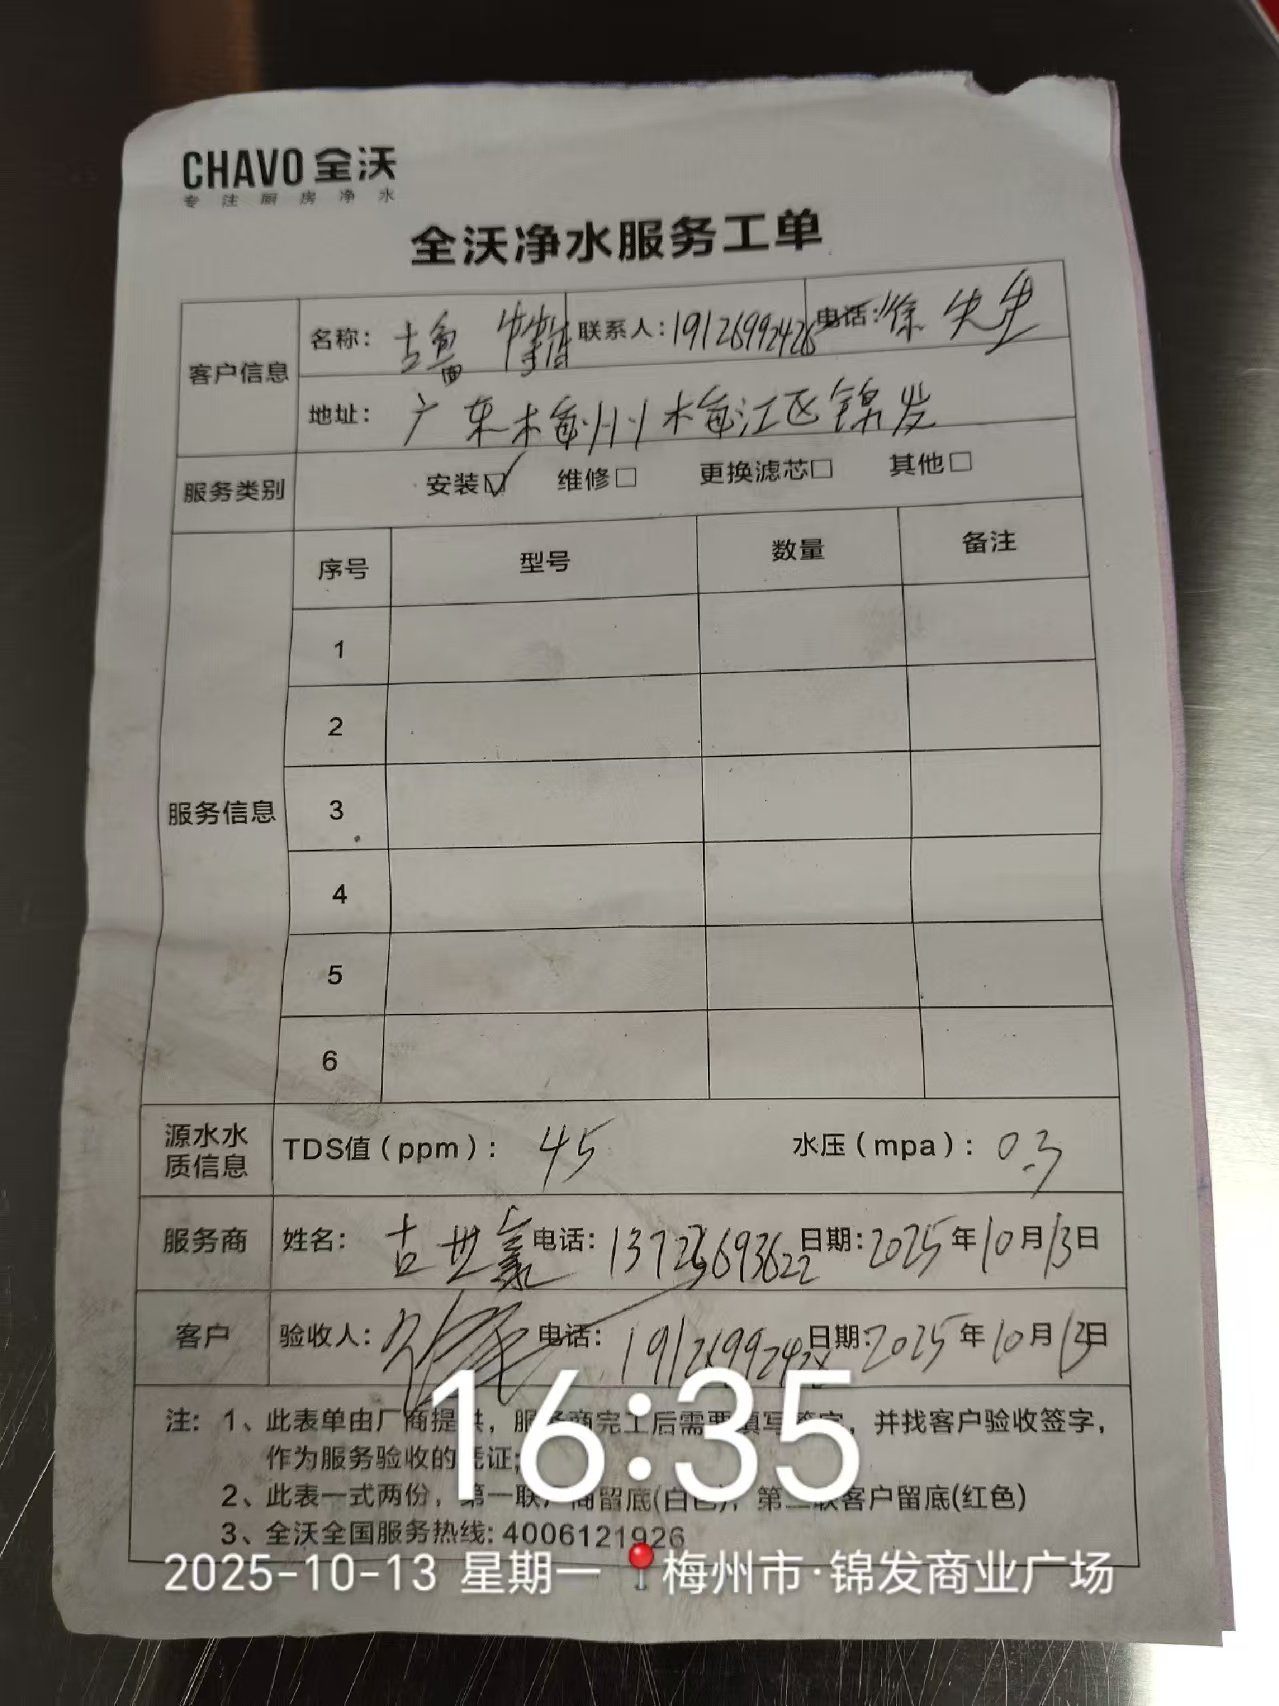 CHAVO 全沃
专注厨房净水
全沃净水服务工单
客户信息
名称： 古 联系人：19126992428 电话：徐先生
地址： 广东梅州梅江区锦发
服务类别 安装☑ 维修□ 更换滤芯□ 其他□
服务信息
序号 型号 数量 备注
1
2
3
4
5
6
源水水质信息 TDS值（ppm）： 45 水压（mpa）：0.3
服务商 姓名： 古世豪 电话：13725693622 日期：2025年10月13日
客户 验收人： 电话：191269924 日期：2025年10月13日
注：1、此表单由厂商提供，服务商完工后需要填写签字，并找客户验收签字，
作为服务验收的凭证；
2、此表一式两份，第一联厂商留底(白色)，第二联客户留底(红色)
3、全沃全国服务热线：4006121926
16:35
2025-10-13 星期一 梅州市·锦发商业广场